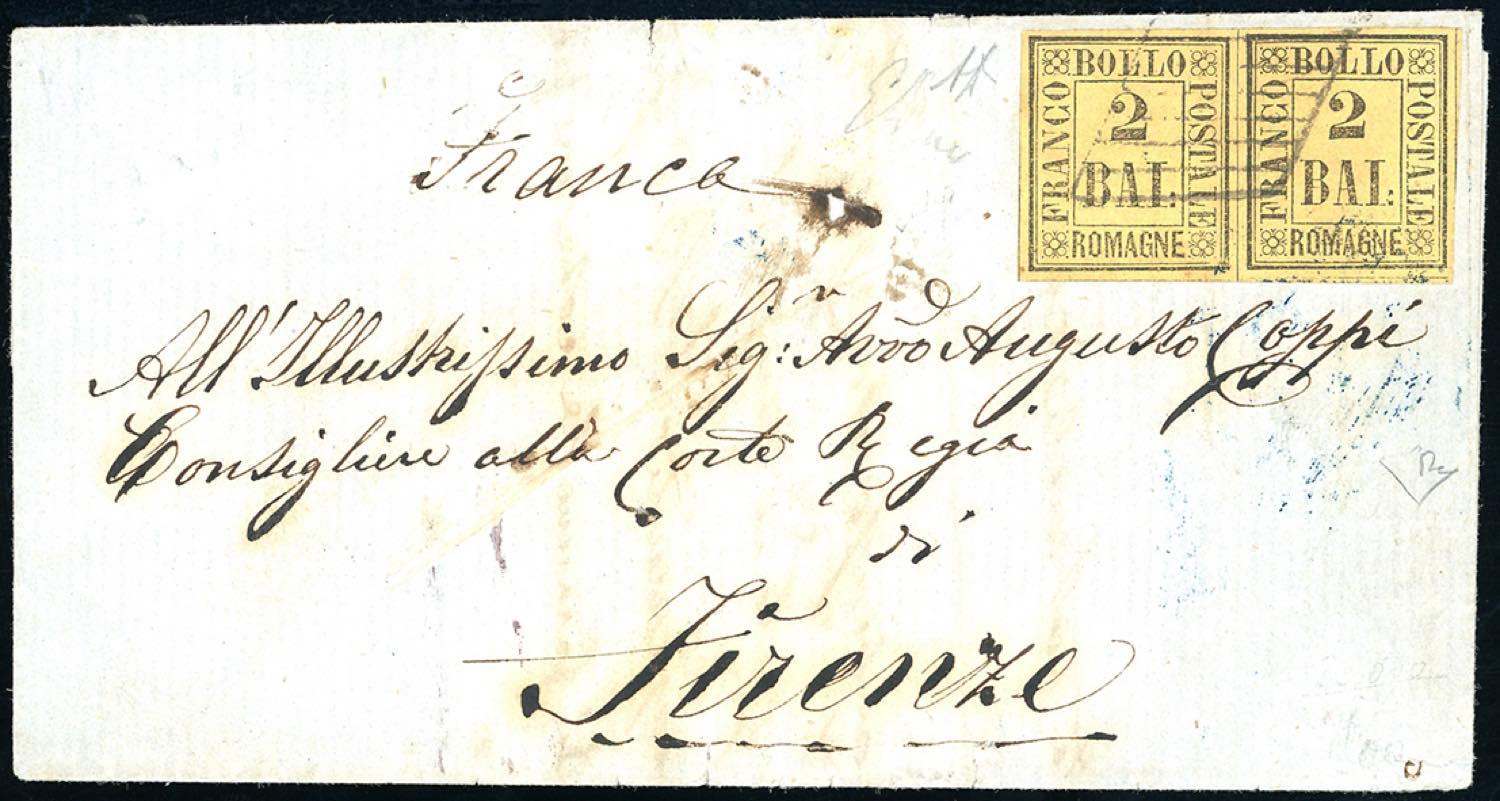 BOLLO
FRANCO
2
BAI.
POSTALE
ROMAGNE
BOLLO
FRANCO
2
BAI:
POSTALE
ROMAGNE
Franca
All'Illustrissimo Sig:r Avvo Augusto Coppi
Consigliere alla Corte Regia
di
Firenze